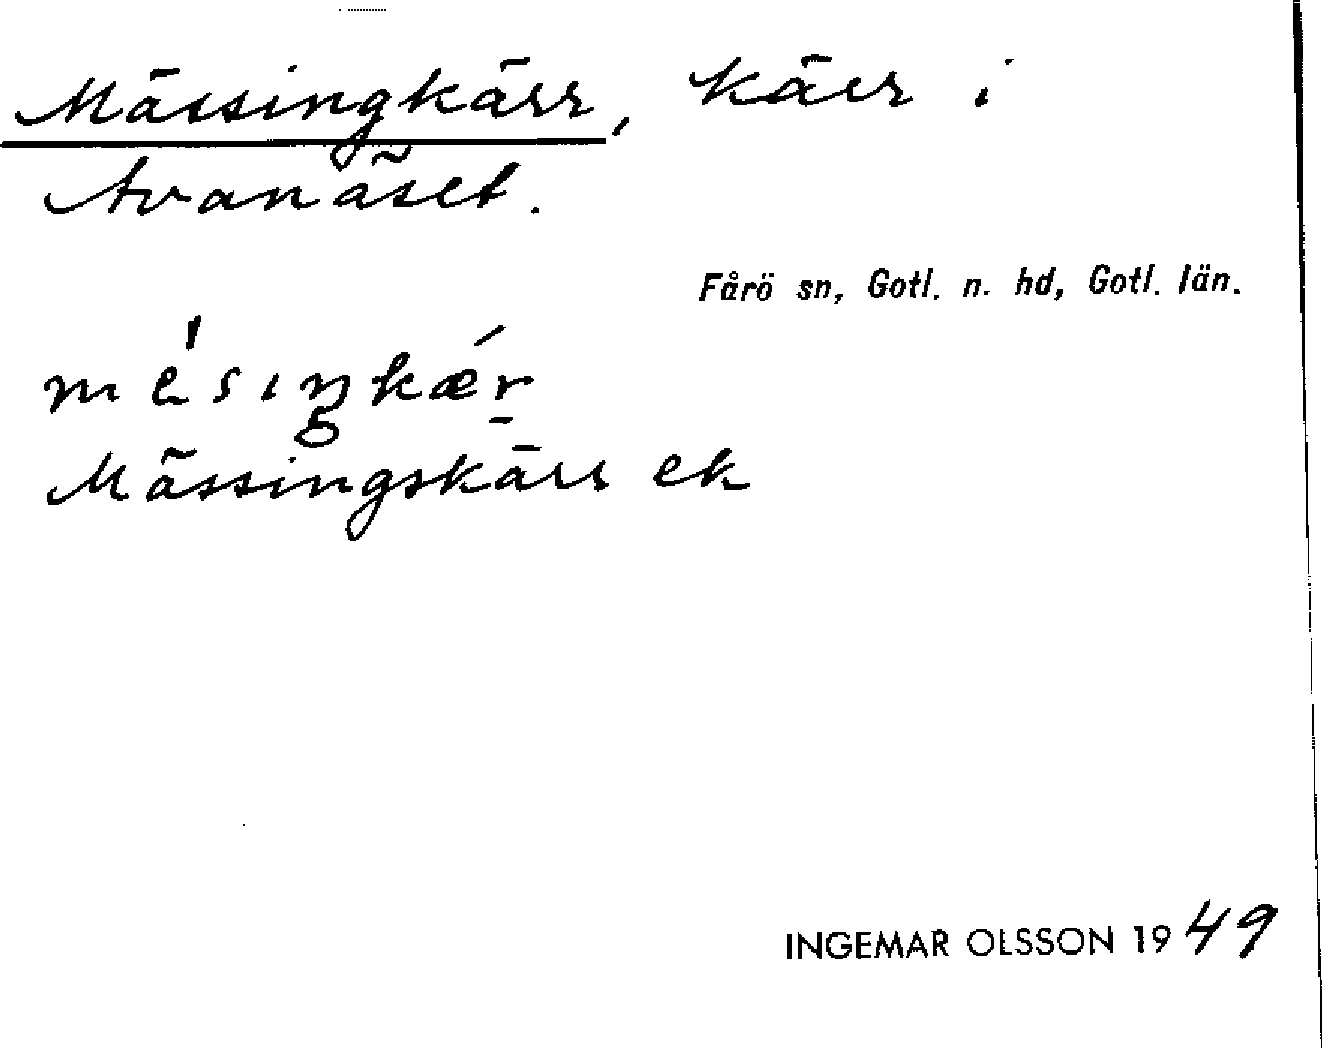 Mässingkärr, kärr i
Avanäset.
Fårö sn, Gotl. n. hd, Gotl. län.
mèsıŋkǽr
Mässingskärr ek
INGEMAR OLSSON 1949